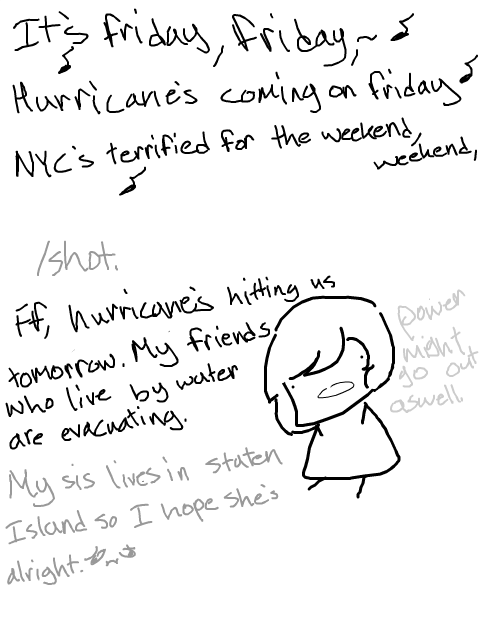 It's friday, friday,~ ♪
♪
Hurricane's coming on friday ♪
NYC's terrified for the weekend,
weekend,
♪
/shot.
Ff, hurricane's hitting us
tomorrow. My friends
who live by water
are evacuating.
power
might
go out
aswell
My sis lives in staten
Island so I hope she's
alright.